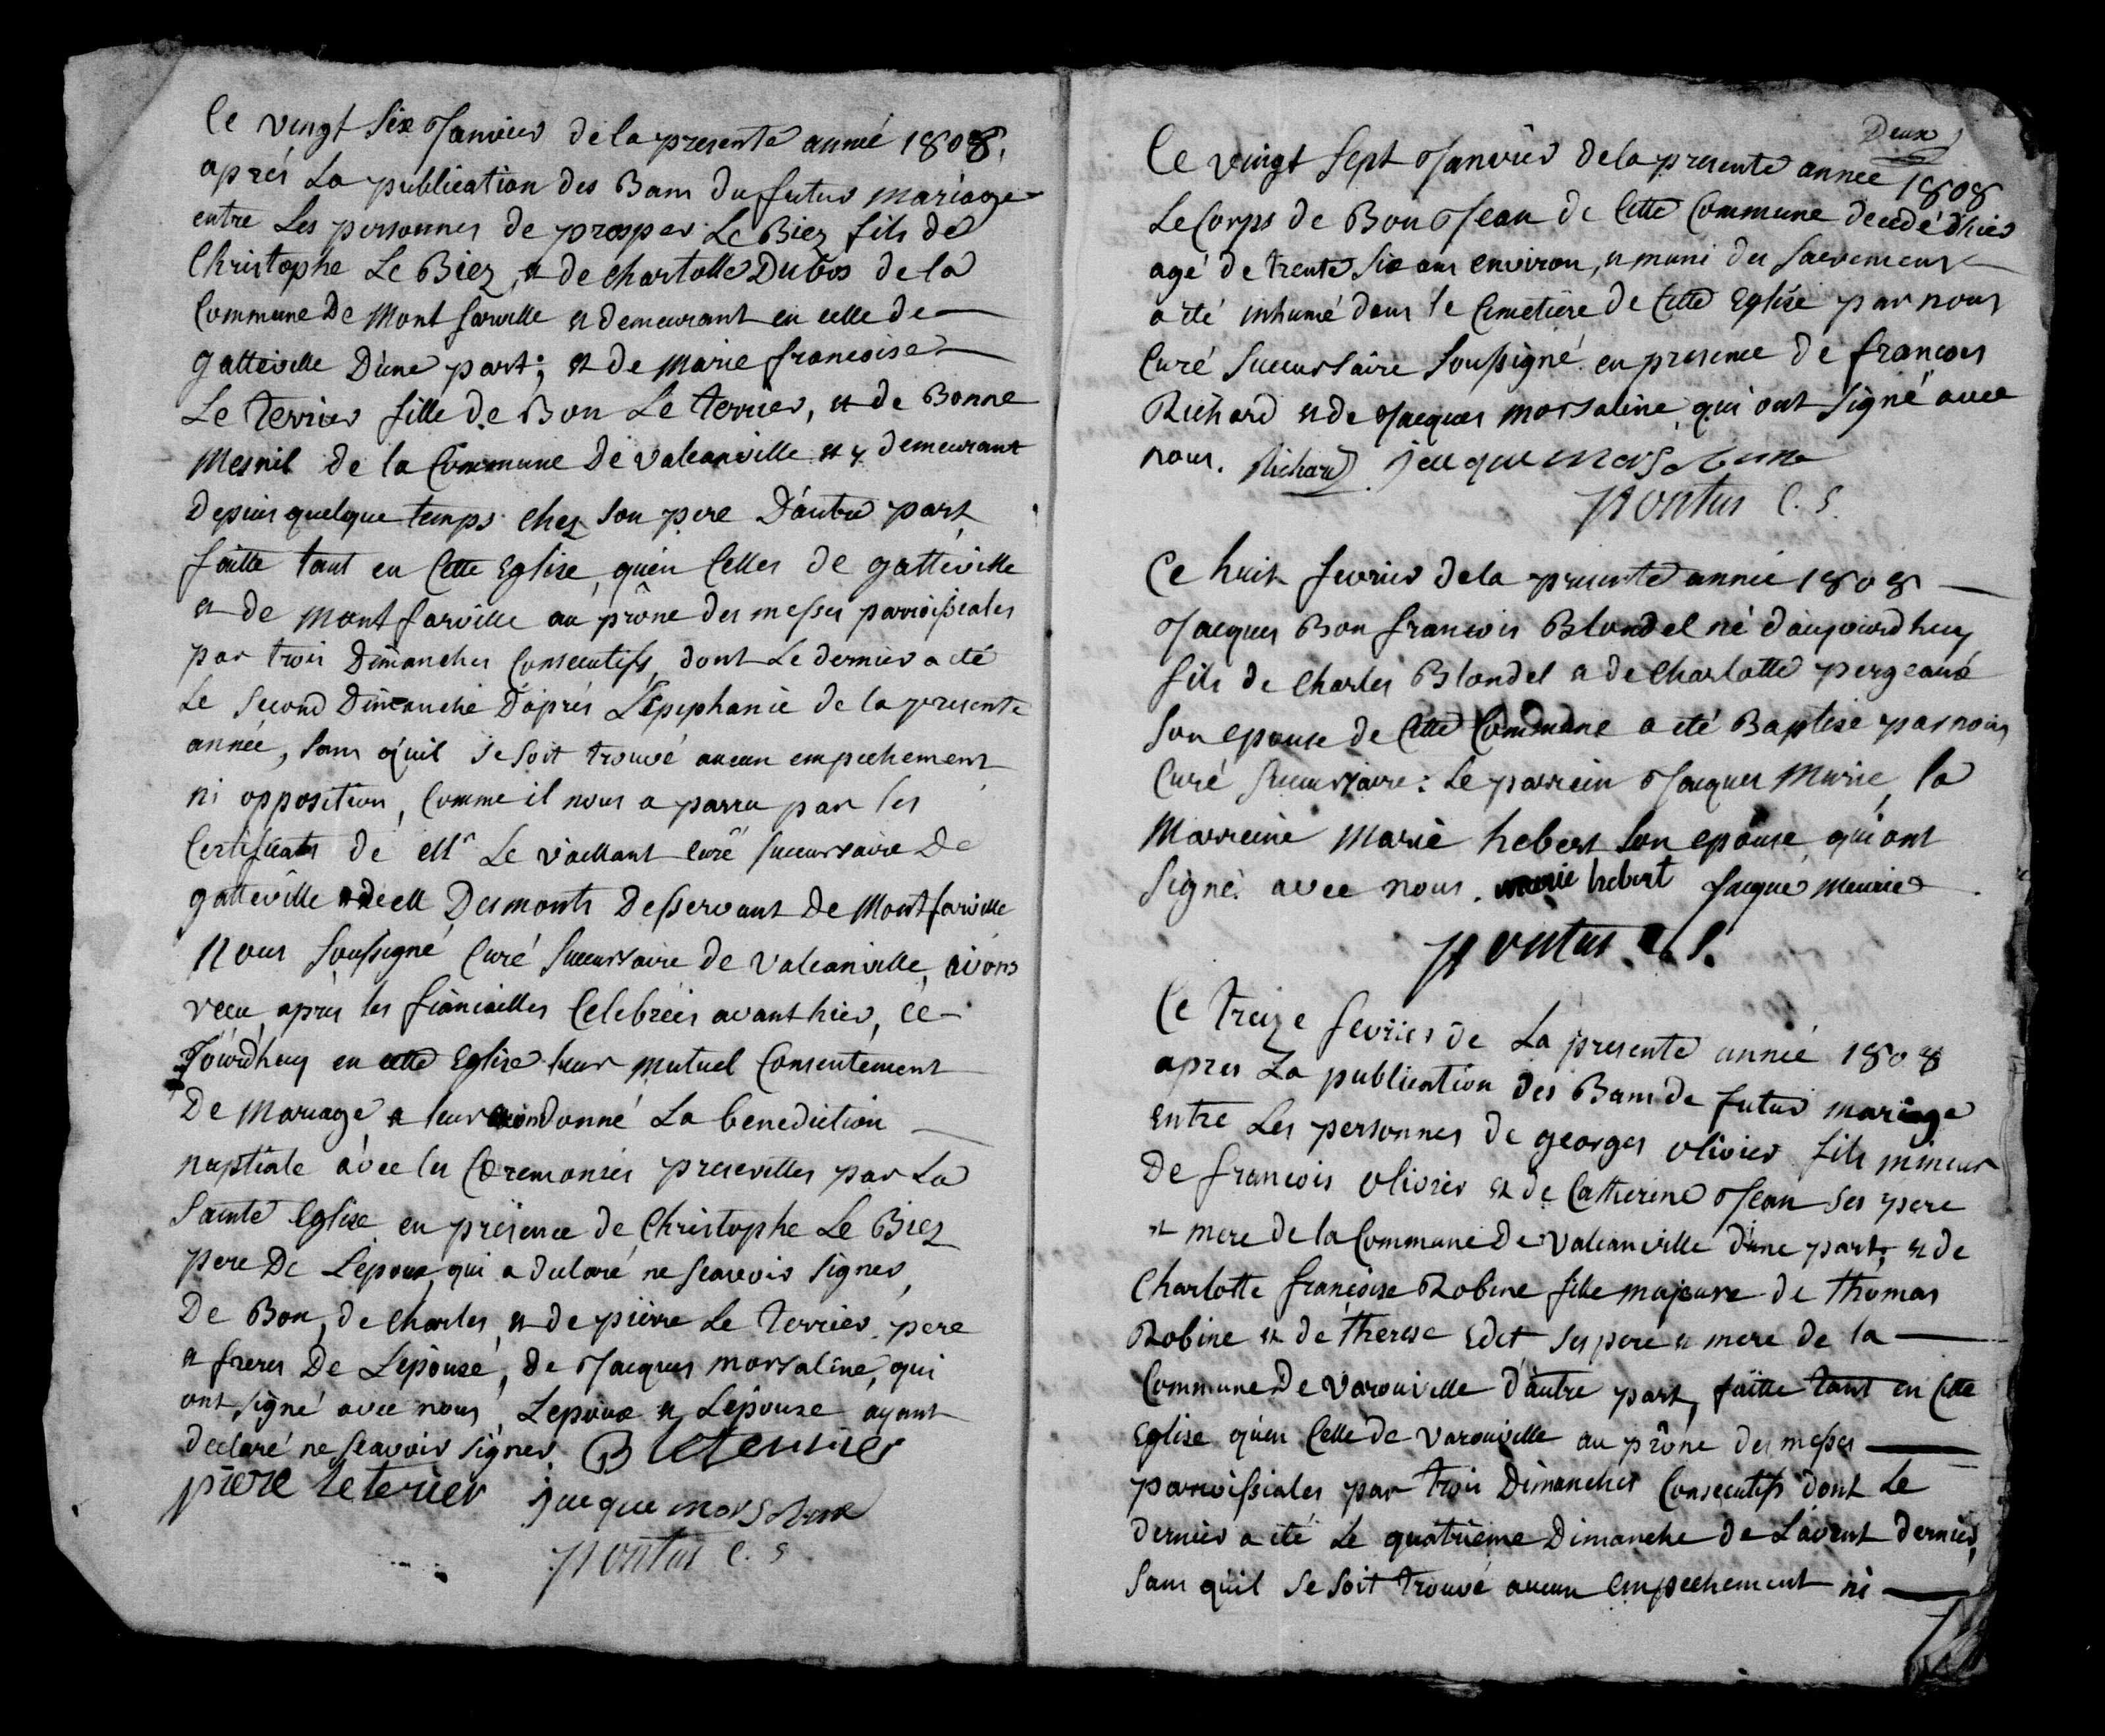 Ce vingt Six Janvier de la presente année 1808.
après La publication des Bans du futur mariage
entre Les personnes de prosper Le Biez fils de
Christophe Le Biez, et de charlotte Dubos de la
Commune De Montfarville et demeurant en celle de
gatteville D'une part; et de marie francoise
Le terrier fille de Bon Le terrier, et de Bonne
Mesnil de la Commune De valcanville et y demeurant
Depuis quelque temps chez son pere D'autre part
faitte tant en Cette Eglise, qu'en Celles de gatteville
et de montfarville au prône des messes parroissiales
par trois Dimanches Consecutifs, dont Le dernier a été
Le Second Dimanche D'après L'Epiphanie de la presente
année, sans qu'il se soit trouvé aucun empechement
ni opposition, Comme il nous a parru par les
Certificats de Mr Le vaillant Curé succursaire De
gatteville et de M Desmonts Desservant De Montfarville
Nous soussigné Curé Succursaire de valcanville, avons
recu après les fiancailles Celebrées avant hier, ce
Jourdhuy en cette Eglise leur mutuel Consentement
De Mariage et leur avons donné La benediction
nuptiale avec les Ceremonies prescrittes par La
Sainte Eglise en présence de Christophe Le Biez
pere De L'époux, qui a declaré ne scavoir signer,
De Bon, de charles, et de pierre Le terrier pere
et freres De L'épouse, de Jacques morsaline, qui
ont signé avec nous, L'epoux et L'epouse ayant
declaré ne scavoir signer. B leterrier
piere leterier jacque morsaline
pontus C. S.
Deux
Ce vingt Sept Janvier de la presente année 1808
Le Corps de Bon Jean de Cette Commune decedé d'hier
agé de trente Six ans environ, et muni des sacremens
a été inhumé dans le Cimetière de Cette Eglise par nous
Curé Succursaire Soussigné en presence de francois
Richard et de Jacques morsaline qui ont signé avec
nous. Richard jacque morsaline
pontus C. S.
Ce huit fevrier de la presente année 1808
Jacques Bon francois Blondel né d'aujourdhuy
fils de Charles Blondel et de Charlotte pergeaux
Son epouse de Cette Commune a été Baptisé par nous
Curé Succursaire: Le parrein Jacques Murie, la
Marreine Marie hebert Son epouse, qui ont
Signé avec nous. marie hebert Jacque Meurie
pontus C. S.
Ce treize fevrier de La presente année 1808
apres La publication des Bans de futur mariage
entre Les personnes de georges olivier fils mineur
De francois olivier et de Catherine Jean ses pere
et mere de la Commune De valcanville d'une part, et de
Charlotte françoise Robine fille majeure de thomas
Robine et de therese Edet ses pere et mere de la
Commune De varouville d'autre part, faitte tant en Cette
Eglise qu'en Celle de varouville au prône des messes
parroissiales par trois Dimanches Consecutifs dont Le
dernier a été Le quatrieme Dimanche de L'avent dernier,
Sans qu'il Se soit trouvé aucun empechement ni